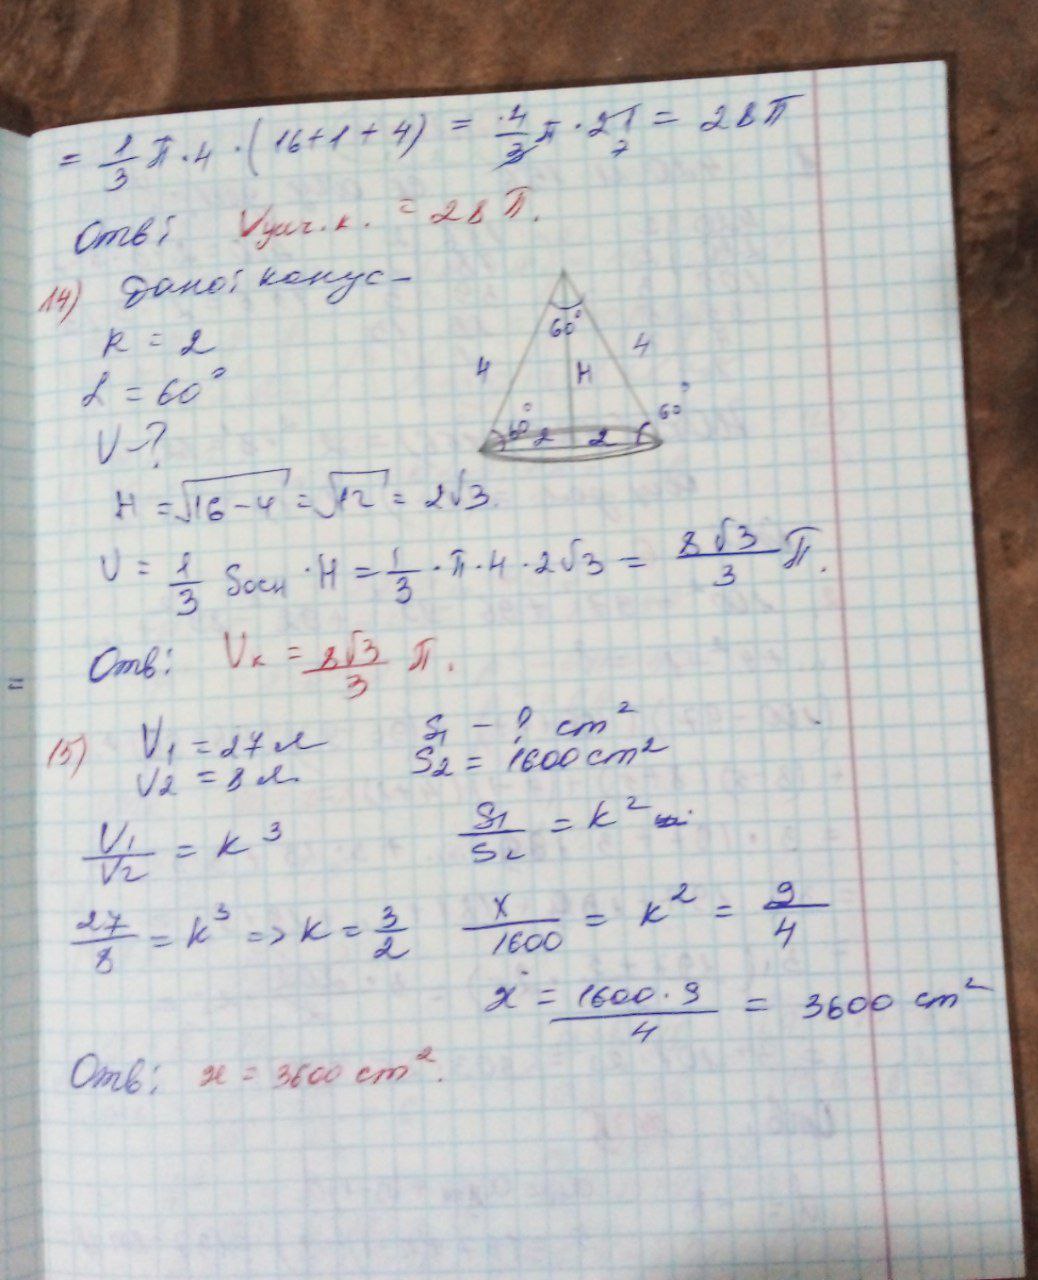 = 1/3 π · 4 · (16+1+4) = 4/3 π · 21 7 = 28π
Отв: Vус.к. = 28π.
14) Дано: конус –
R = 2
L = 60°
V – ?
60°
4
4
H
60°
60°
2
2
H = √16-4 = √12 = 2√3.
V = 1/3 Sосн · H = 1/3 · π · 4 · 2√3 = 8√3/3 π.
Отв: Vк = 8√3/3 π.
=
15) V1 = 27 л S1 – ? cm²
V2 = 8 л S2 = 1600 cm²
V1/V2 = k³ S1/S2 = k²
27/8 = k³ => k = 3/2 x/1600 = k² = 9/4
x = 1600·9/4 = 3600 cm²
Отв: x = 3600 cm².